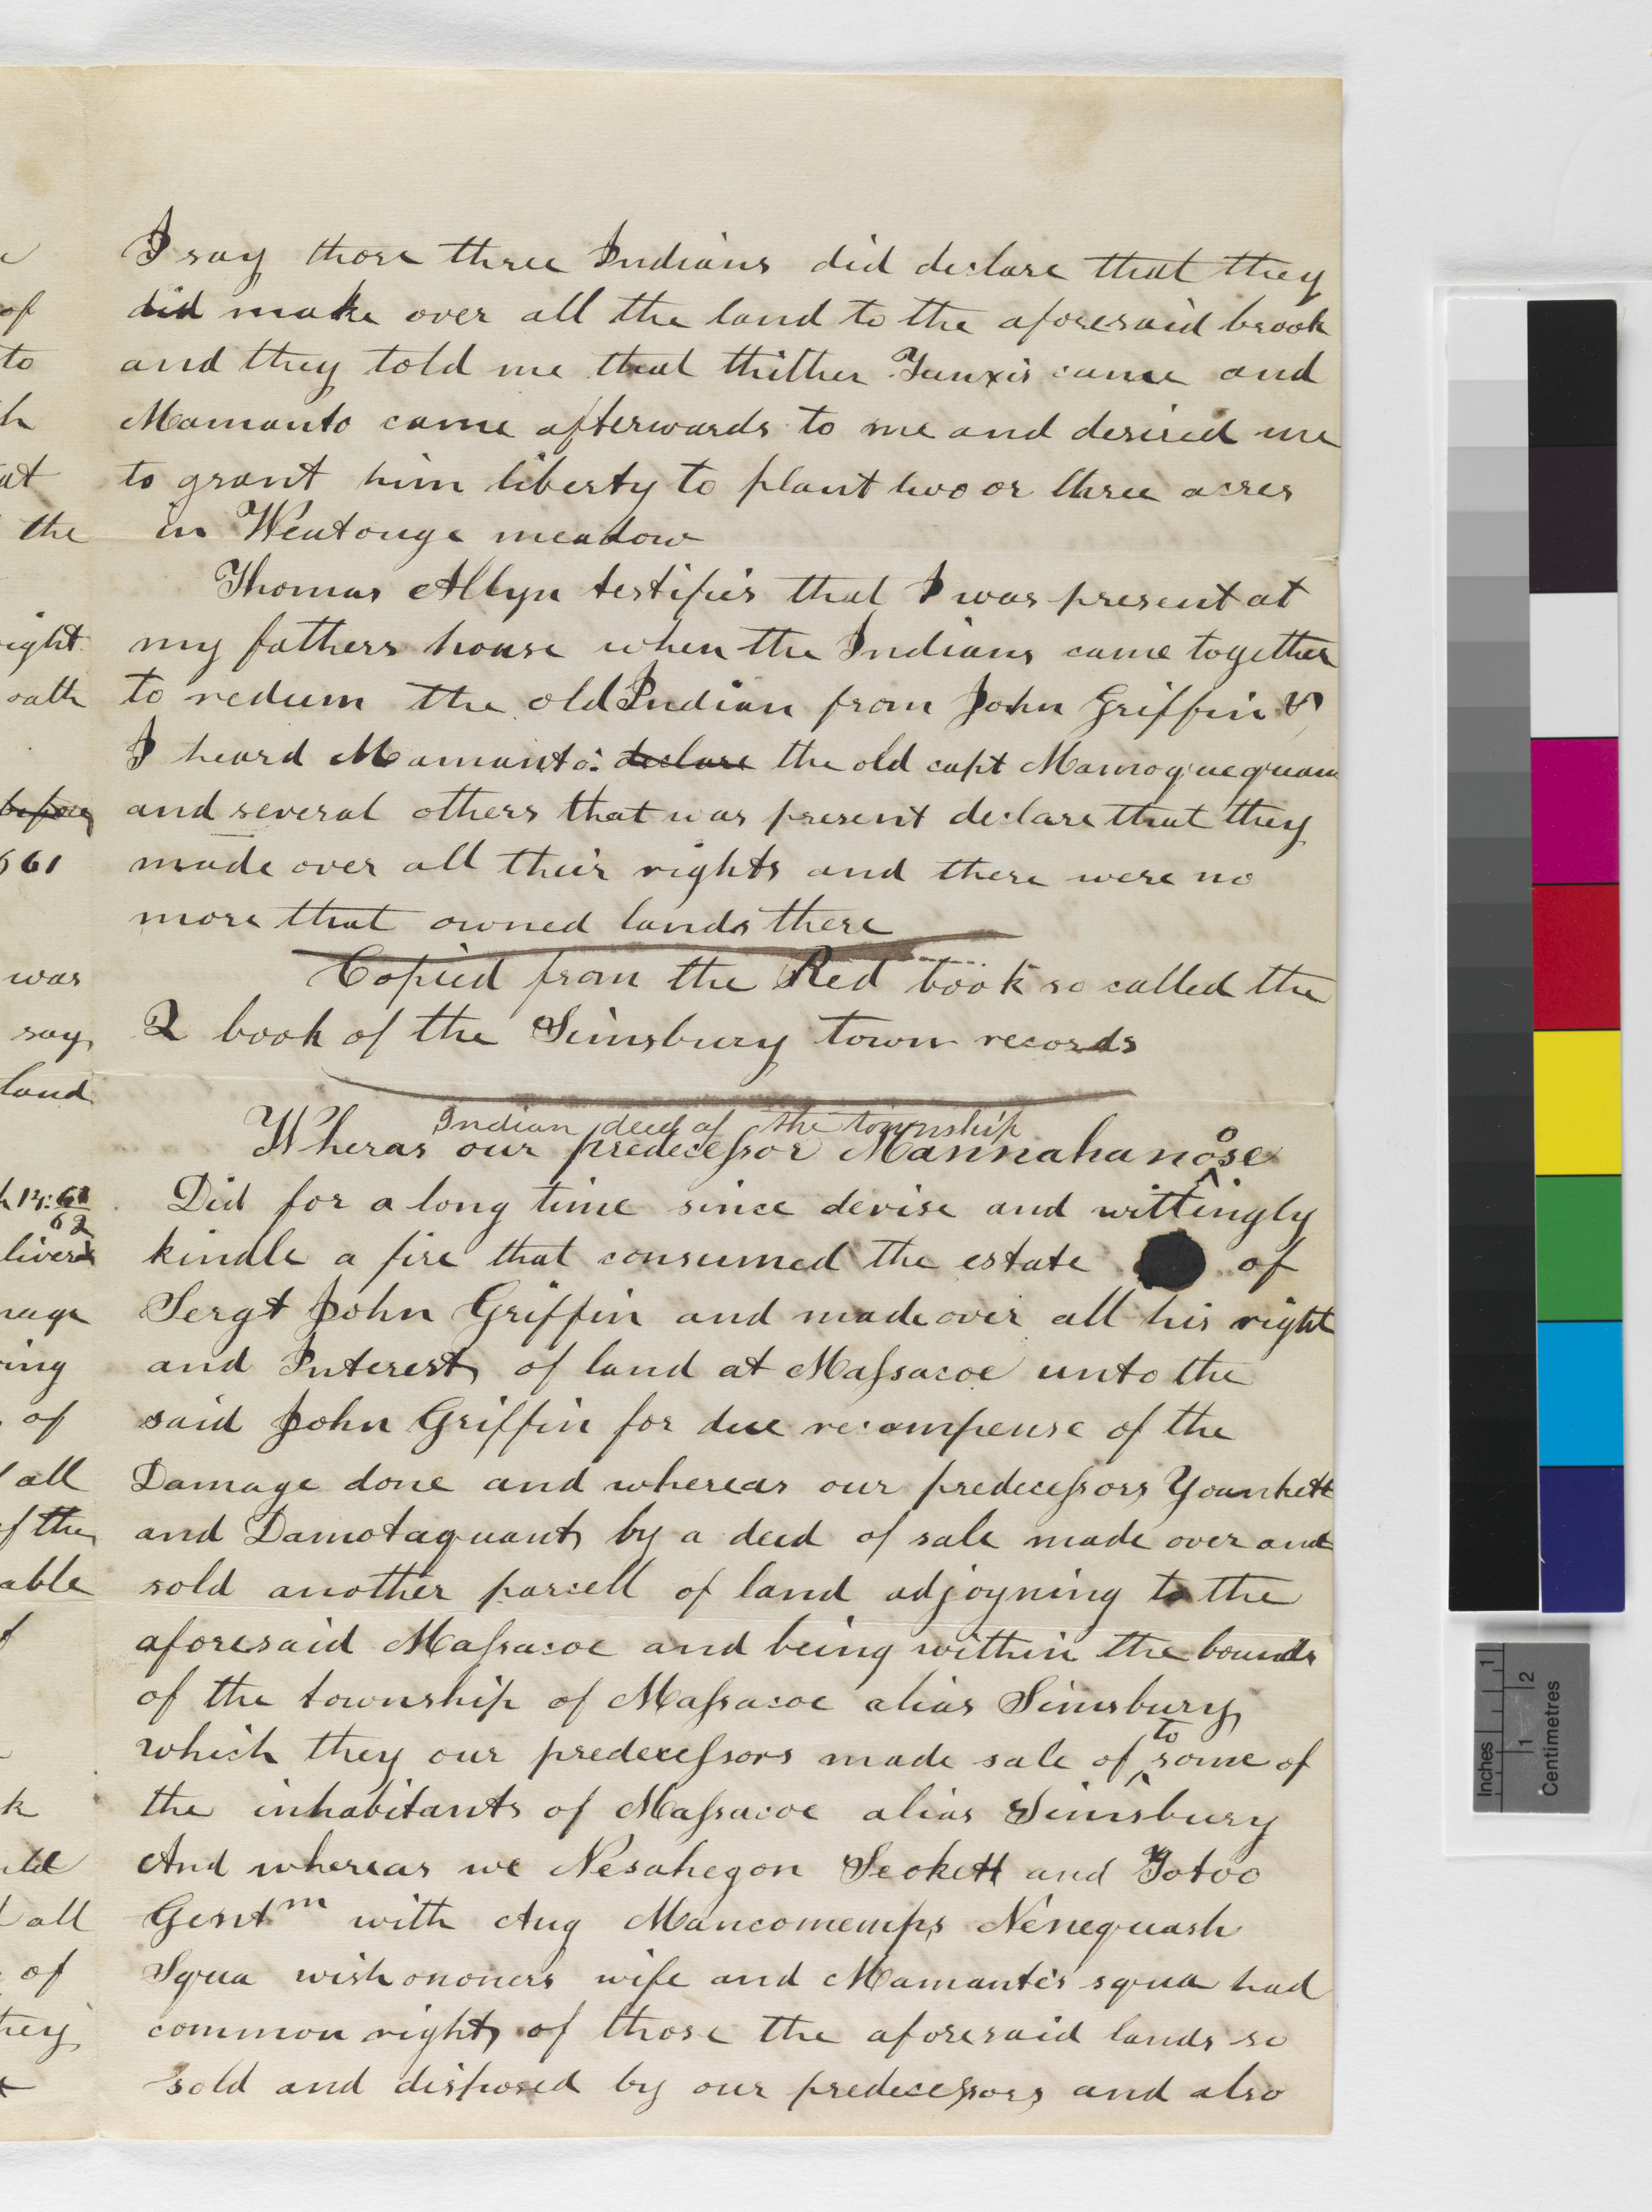 I say those three Indians did declare that they
did make over all the land to the aforesaid brook
and they told me that thither Tunxis came and
Mamanto came afterwards to me and desired me
to grant him liberty to plant two or three acres
in Weatouge meadow
Thomas Allyn testifies that I was present at
my fathers house when the Indians came together
to redeem the old Indian from John Griffin &
I heard Mamanto: declare the old capt Mamoquequam
and several others that was present declare that they
made over all their rights and there were no
more that owned lands there
Copied from the Red book so called the
2 book of the Simsbury town records
Indian deed of the township
Wheras our predecessor Mannahanose
Did for a long time since devise and wittingly
kindle a fire that consumed the estate of
Sergt John Griffin and made over all his right
and Interest of land at Massacoe unto the
said John Griffin for due recompense of the
Damage done and whereas our predecessors Younkett
and Damotaquant by a deed of sale made over and
sold another parcell of land adjoyning to the
aforesaid Massacoe and being within the bounds
of the township of Massacoe alias Simsbury
which they our predecessors made sale of to some of
the inhabitants of Massacoe alias Simsbury
And whereas we Nesahegon Seokett and Totoo
Gentm with Aug Mancomemps Nenequash
Squa wishononers wife and Mamantos squa had
common right of those the aforesaid lands so
sold and disposed by our predecessors and also
of
to
the
right
oath
before
was
say
land
all
of the
able
all
of